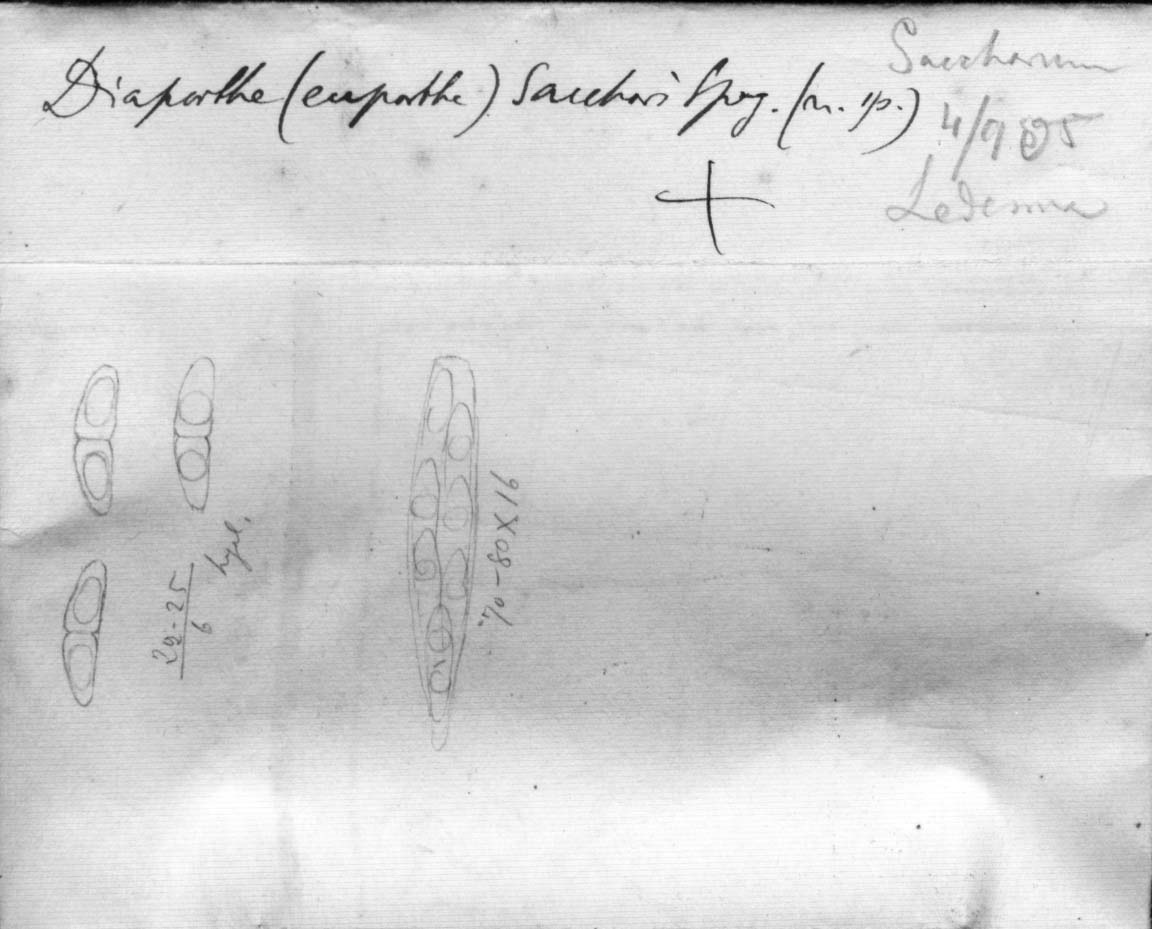 Diaporthe (euporthe) Sacchari Speg. (n. sp.)
Saccharum
4/9 05
Ledesma
hyal.
25
6
70-80 X 16